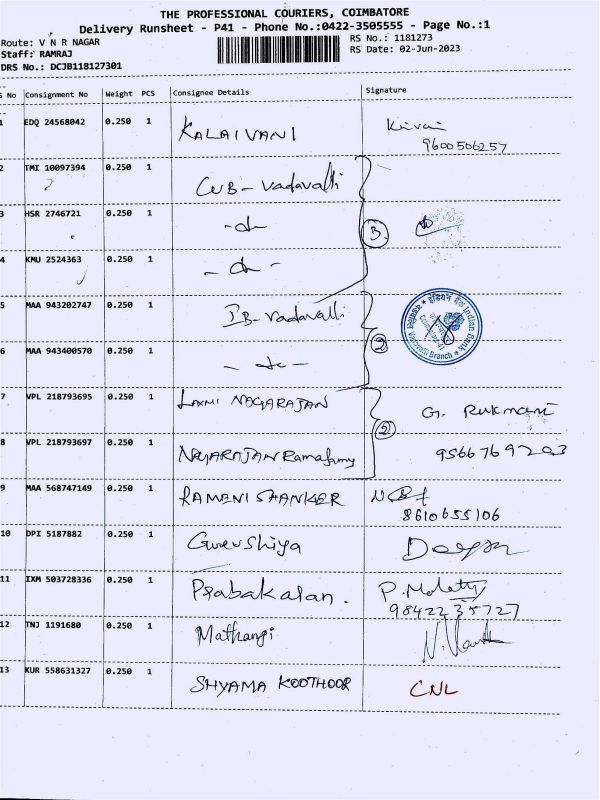 THE PROFESSIONAL COURIERS, COIMBATORE
Delivery Runsheet - P41 - Phone No.:0422-3505555 - Page No.:1
Route: V N R NAGAR
RS No.: 1181273
Staff: RAMRAJ
RS Date: 02-Jun-2023
DRS No.: DCJB118127301
S No Consignment No Weight PCS Consignee Details Signature
1 EDQ 24568042 0.250 1 KALAIVANI
9600506257
2 TMI 10097394 0.250 1 CUB - Vadavalli
3 HSR 2746721 0.250 1 - do -
3
4 KMU 2524363 0.250 1 - do -
5 MAA 943202747 0.250 1 IB - Vadavalli
इंडियन बैंक Indian Bank
Vadavalli Branch
2
6 MAA 943400570 0.250 1 - do -
7 VPL 218793695 0.250 1 LAXMI NAGARAJAN G. Rukmani
2
8 VPL 218793697 0.250 1 NAGARAJAN Ramasamy 9566769203
9 MAA 568747149 0.250 1 RAMANI SHANKER
8610655106
10 DPI 5187882 0.250 1 Gurushiya Deepa
11 IXM 503728336 0.250 1 Prabakaran. P. Malathy
9842235727
12 TNJ 1191680 0.250 1 Mathangi
13 KUR 558631327 0.250 1 SHYAMA KOOTHOOR CNL